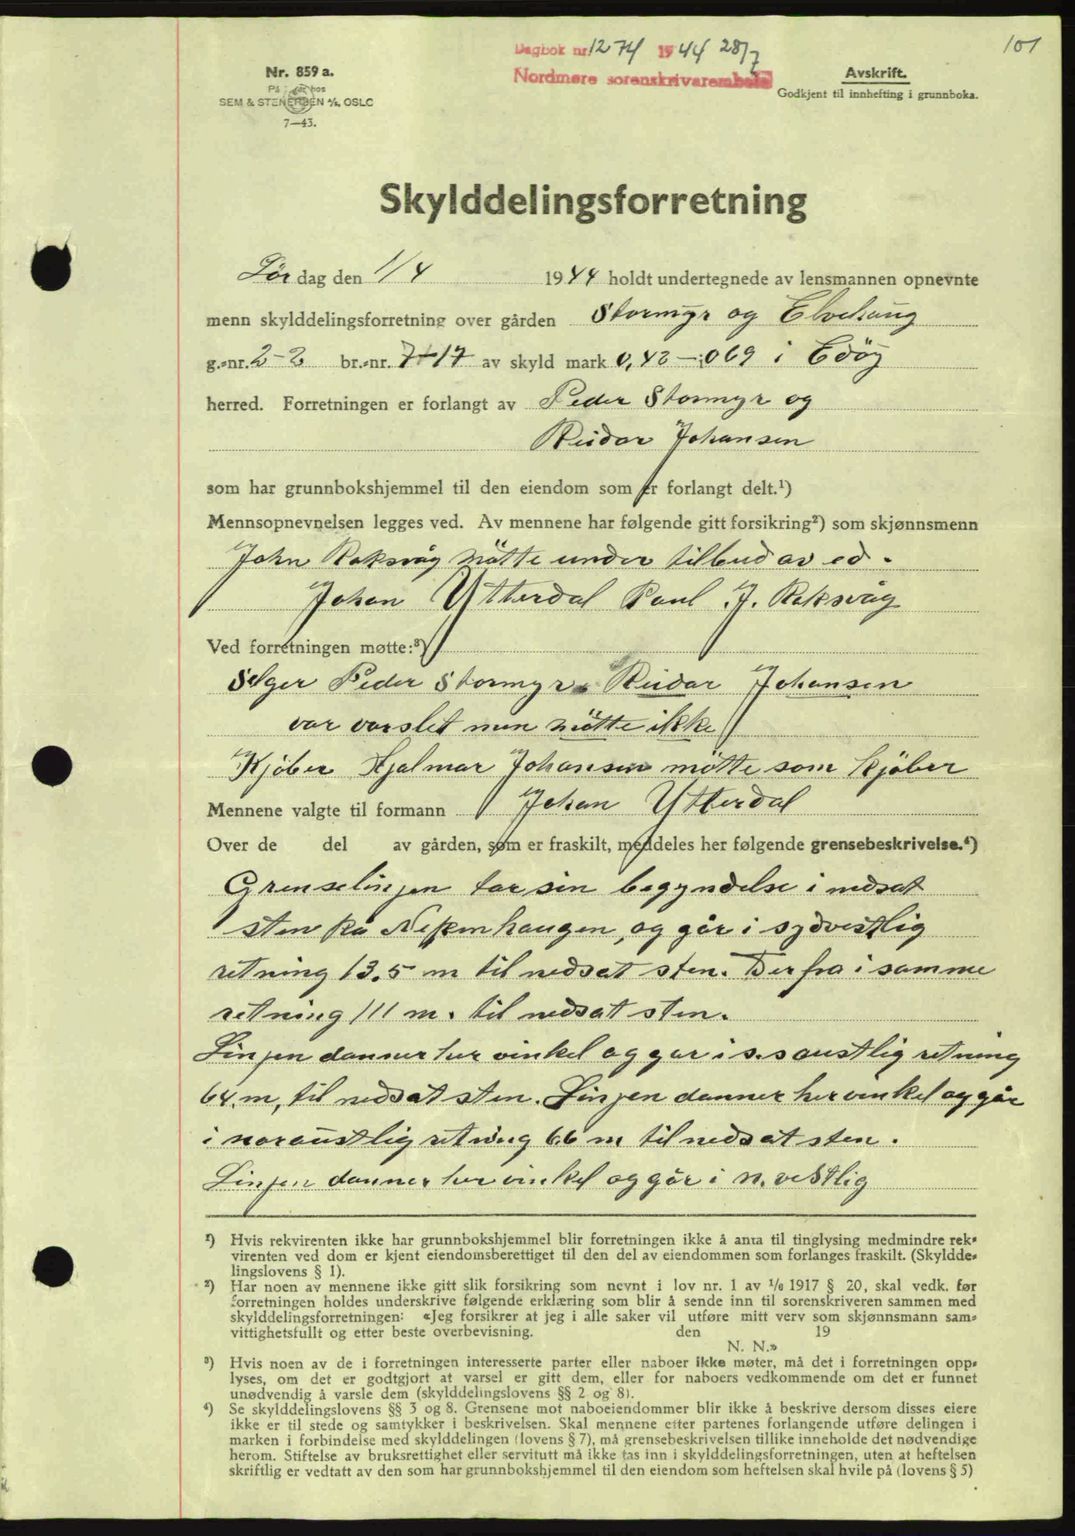 101
Dagbok nr. 1274 1944 28/7
Nordmøre sorenskrivarembede
Nr. 859 a.
På hos
SEM & STENERSEN A/S, OSLO
7—43.
Avskrift.
Godkjent til innhefting i grunnboka.
Skylddelingsforretning
Lør dag den 1/4 1944 holdt undertegnede av lensmannen opnevnte
menn skylddelingsforretning over gården Stormyr og Elvehaug
g.-nr. 2-2 br.-nr. 7-17 av skyld mark 0,42 - 069 i Edöy
herred. Forretningen er forlangt av Peder Stormyr og
Reidar Johansen
som har grunnbokshjemmel til den eiendom som er forlangt delt.¹)
Mennsopnevnelsen legges ved. Av mennene har følgende gitt forsikring²) som skjønnsmenn
John Roksvåg mötte under tilbud av ed.
Johan Ytterdal Paul J. Roksvåg
Ved forretningen møtte:³)
Selger Peder Stormyr. Reidar Johansen
var varslet men mötte ikke
Kjöber Hjalmar Johansen mötte som kjöber
Mennene valgte til formann Johan Ytterdal
Over de del av gården, som er fraskilt, meddeles her følgende grensebeskrivelse.⁴)
Grenselinjen tar sin begyndelse i nedsat
sten på Neppenhaugen, og går i sydvestlig
retning 13,5 m til nedsat sten. Derfra i samme
retning 111 m. til nedsat sten.
Linjen danner her vinkel og gar i s.saustlig retning
64 m, til nedsat sten. Linjen danner her vinkel og går
i noraustlig retning 66 m til nedsat sten.
Linjen danner her vinkel og går i n. vestlig
¹) Hvis rekvirenten ikke har grunnbokshjemmel blir forretningen ikke å anta til tinglysing medmindre rek-
virenten ved dom er kjent eiendomsberettiget til den del av eiendommen som forlanges fraskilt. (Skyldde-
lingslovens § 1).
²) Har noen av mennene ikke gitt slik forsikring som nevnt i lov nr. 1 av 1/6 1917 § 20, skal vedk. før
forretningen holdes underskrive følgende erklæring som blir å sende inn til sorenskriveren sammen med
skylddelingsforretningen: «Jeg forsikrer at jeg i alle saker vil utføre mitt verv som skjønnsmann sam-
vittighetsfullt og etter beste overbevisning. den 19
N. N.»
³) Hvis noen av de i forretningen interesserte parter eller naboer ikke møter, må det i forretningen opp-
lyses, om det er godtgjort at varsel er gitt dem, eller for naboers vedkommende om det er funnet
unødvendig å varsle dem (skylddelingslovens §§ 2 og 8).
⁴) Se skylddelingslovens §§ 3 og 8. Grensene mot naboeiendommer blir ikke å beskrive dersom disses eiere
ikke er til stede og samtykker i beskrivelsen. Skal mennene etter partenes forlangende utføre delingen i
marken i forbindelse med skylddelingen (lovens § 7), må grensebeskrivelsen tillike inneholde det nødvendige
herom. Stiftelse av bruksrettighet eller servitutt må ikke tas inn i skylddelingsforretningen, uten at heftelsen
skriftlig er vedtatt av den som har grunnbokshjemmel til den eiendom som heftelsen skal hvile på (lovens § 5)